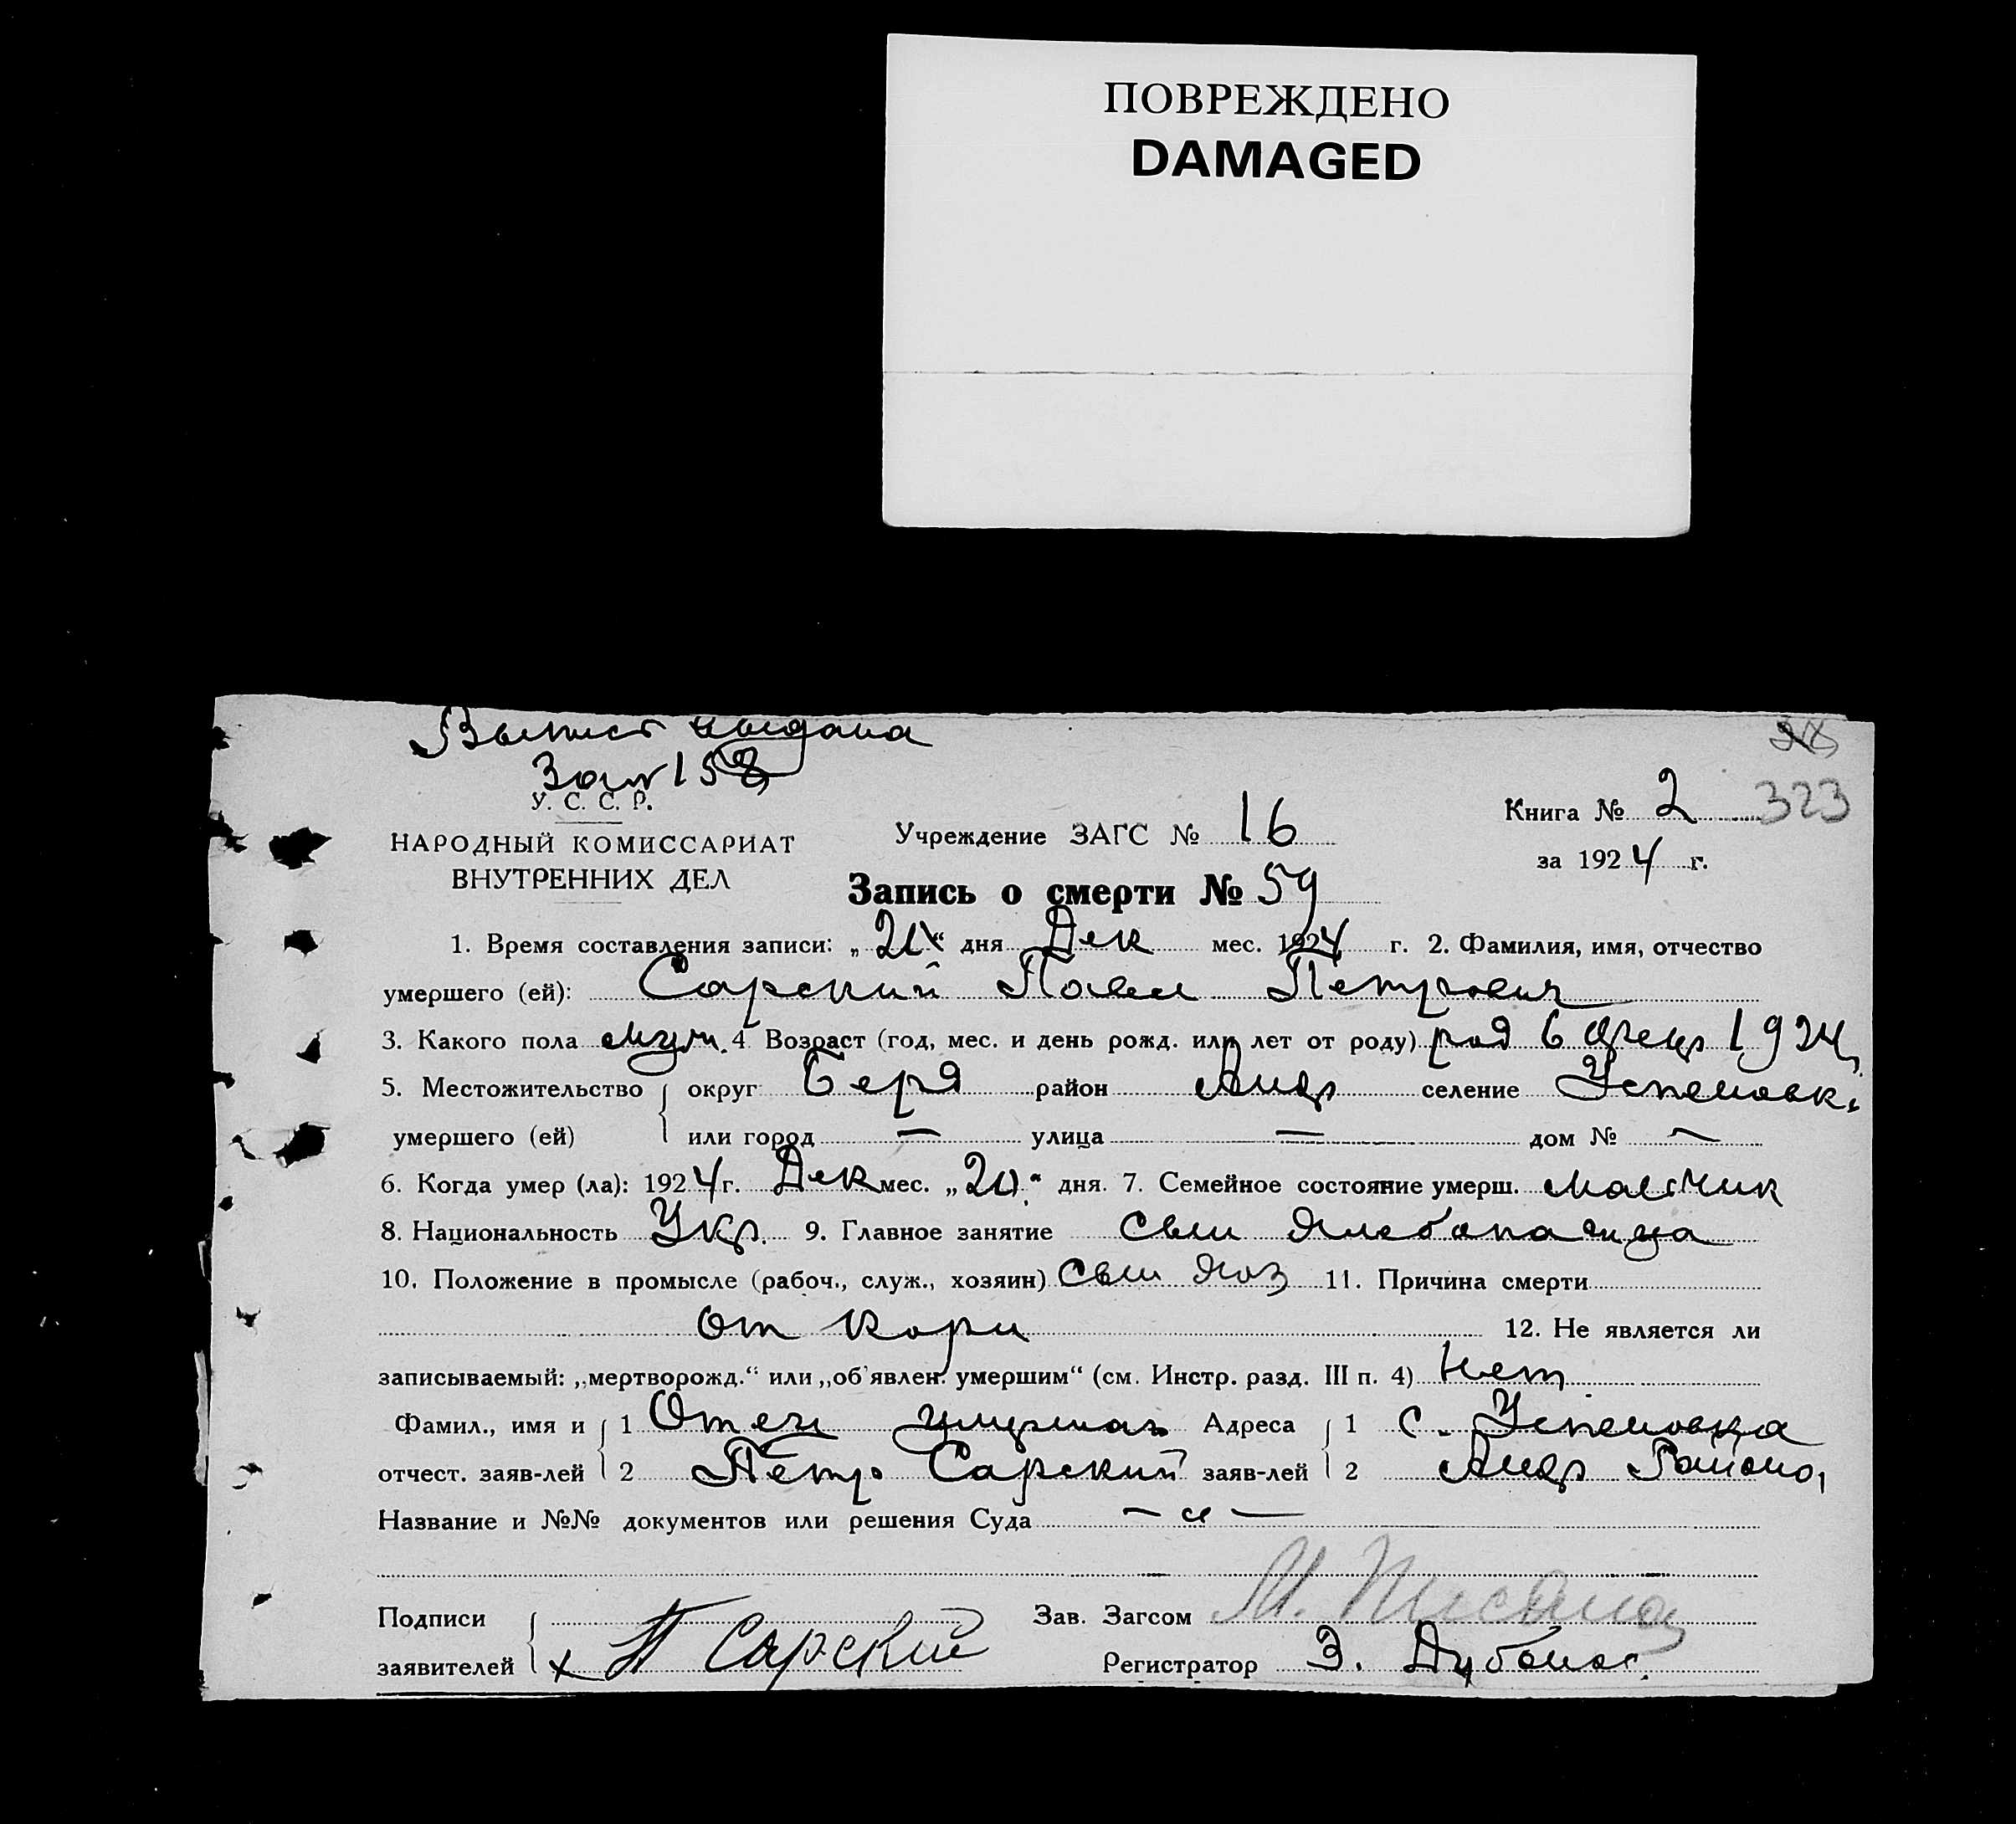 ПОВРЕЖДЕНО
DAMAGED
323
У. С. С. Р.
НАРОДНЫЙ КОМИССАРИАТ
ВНУТРЕННИХ ДЕЛ
Учреждение ЗАГС № 16
Книга № 2
за 1924 г.
Запись о смерти № 59
1. Время составления записи: „21“ дня Дек мес. 1924 г. 2. Фамилия, имя, отчество
умершего (ей): Сарский Павел Петрович
3. Какого пола муж. 4 Возраст (год, мес. и день рожд. или лет от роду) род 6 1924
5. Местожительство округ Берд район Андр селение Успеновк.
умершего (ей) или город — улица — дом № —
6. Когда умер (ла): 1924 г. Дек мес. „20“ дня. 7. Семейное состояние умерш. мальчик
8. Национальность Укр. 9. Главное занятие сын хлебопашца
10. Положение в промысле (рабоч., служ., хозяин) сын хоз 11. Причина смерти
от кори 12. Не является ли
записываемый: „мертворожд.“ или „об'явлен. умершим“ (см. Инстр. разд. III п. 4) Нет
Фамил., имя и 1 Отец Адреса 1 с. Успеновка
отчест. заяв-лей 2 Петр Сарский заяв-лей 2 Андр Района
Название и №№ документов или решения Суда — „ —
Подписи Зав. Загсом М.
заявителей х П Сарский Регистратор З.